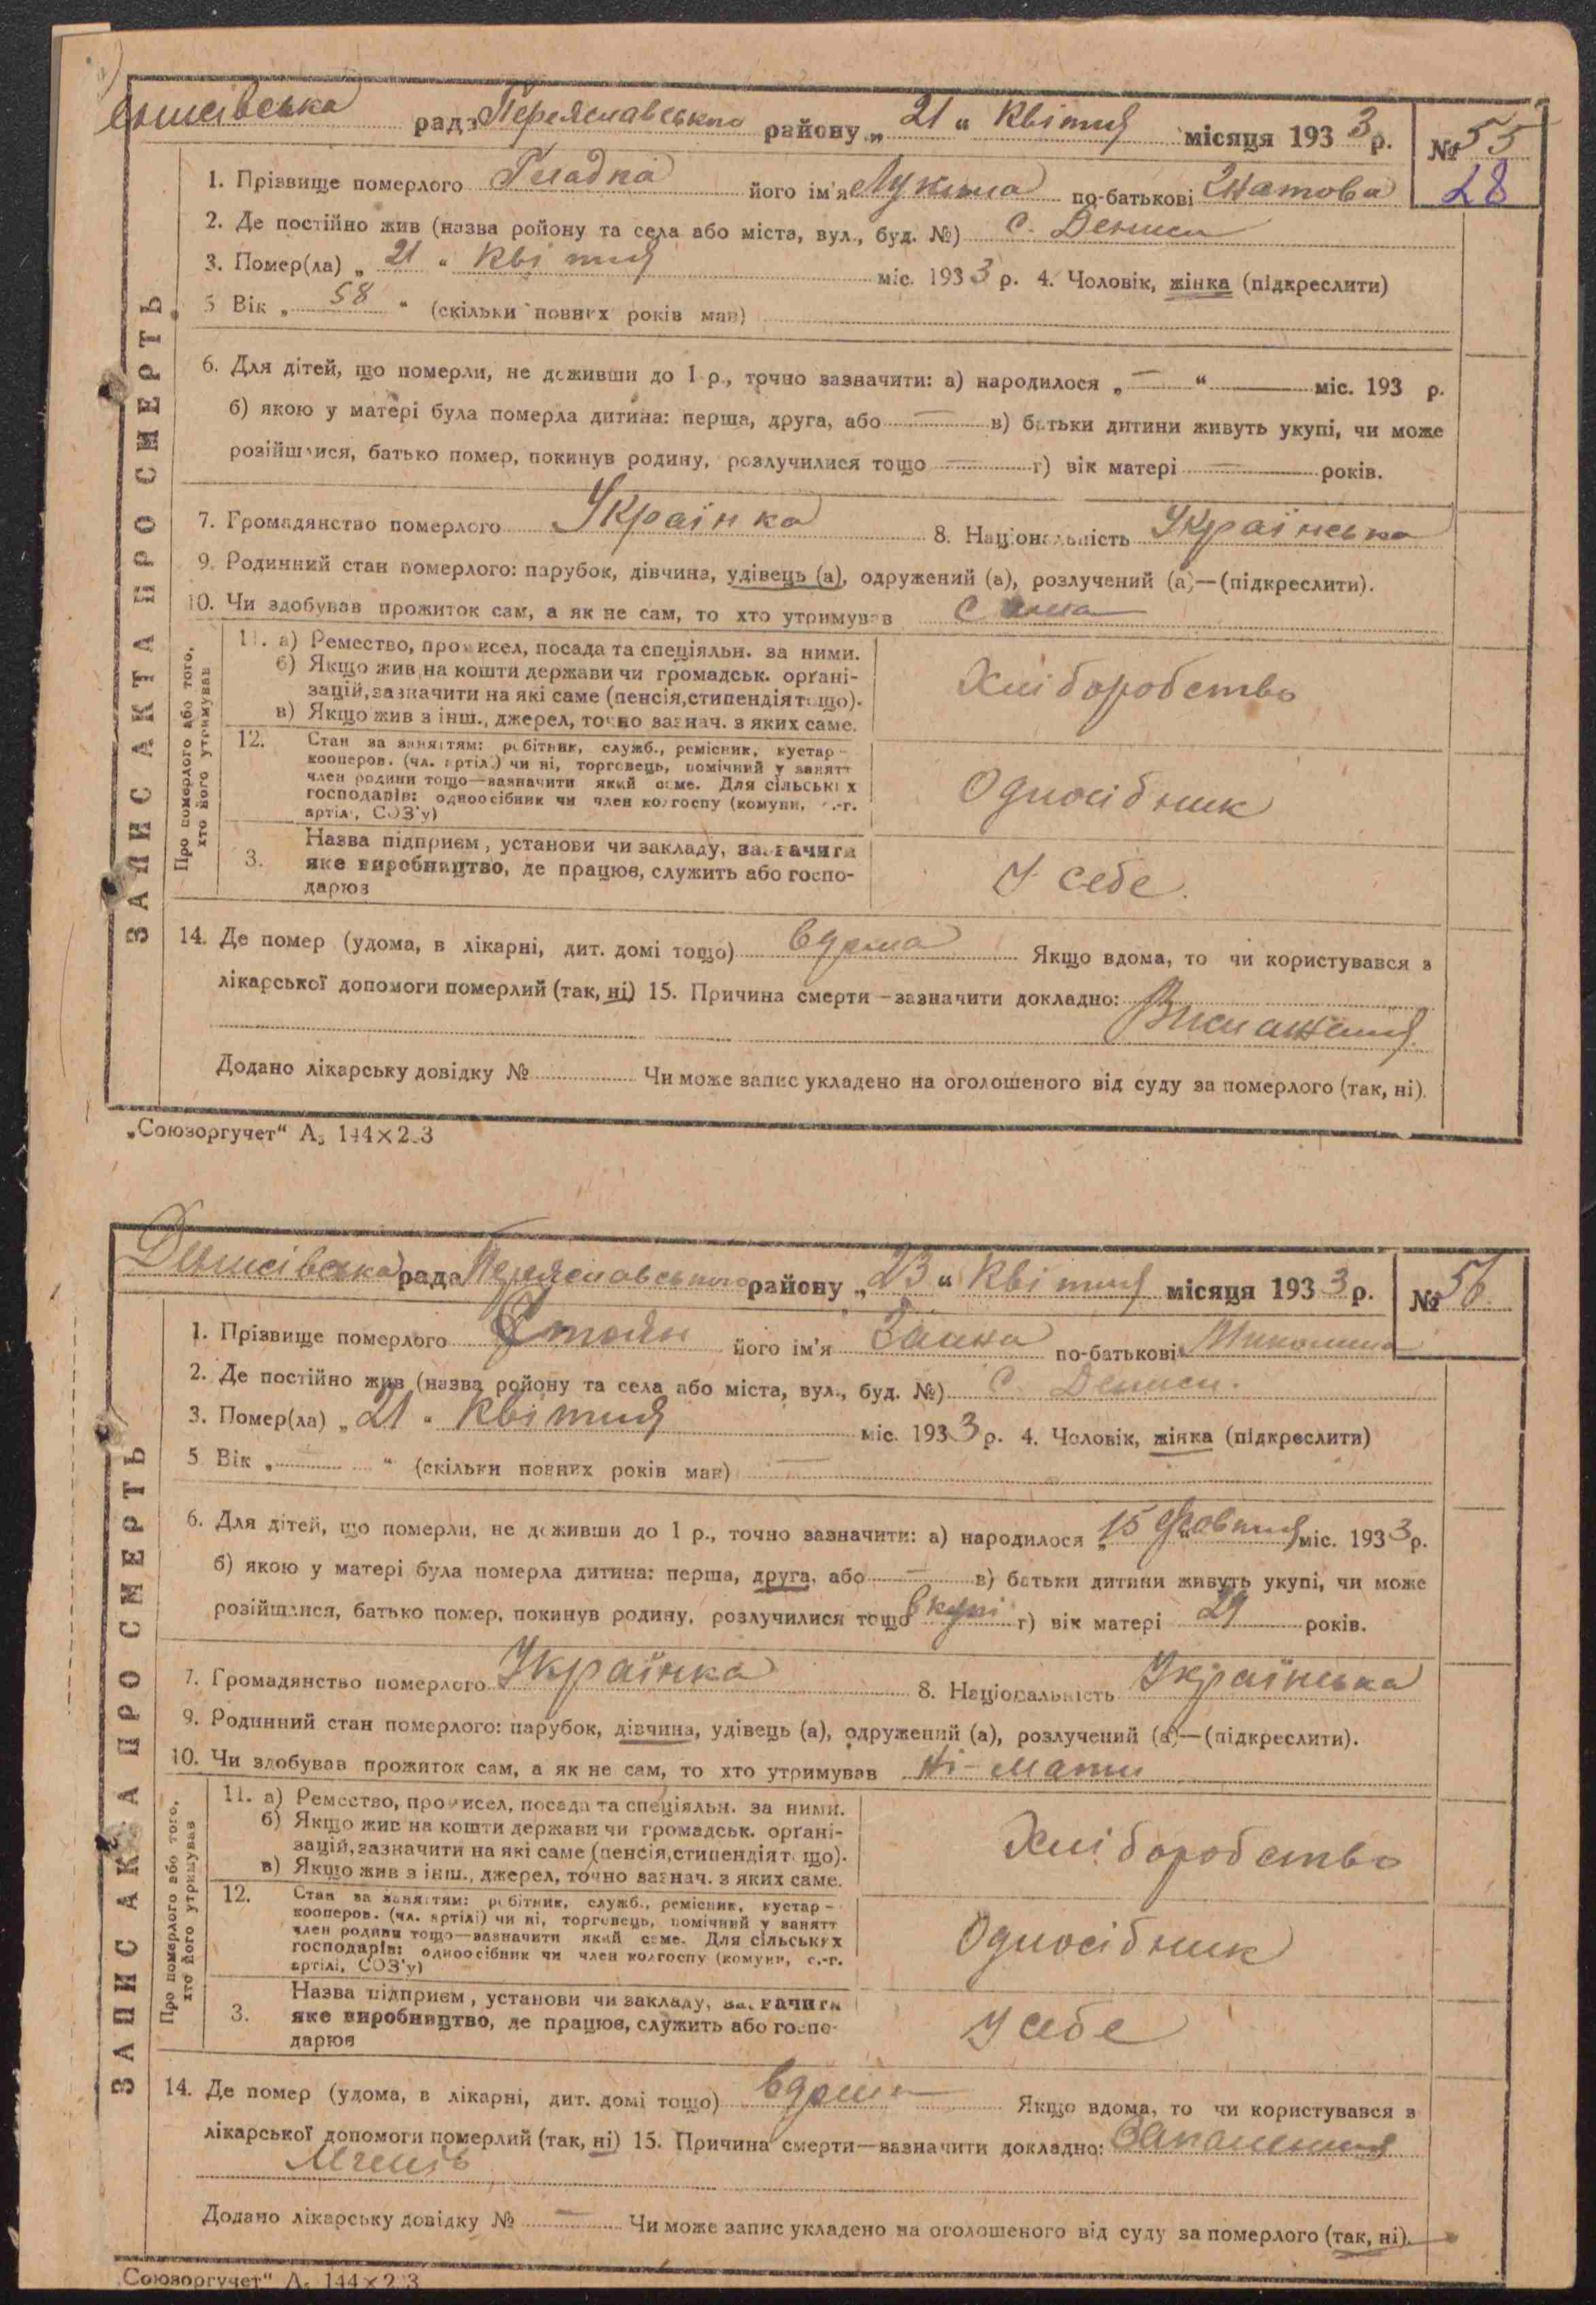 Денисівська рада Переяславського району „ 21 “ Квітня місяця 193 3 р. № 55
28
ЗАПИС АКТА ПРО СМЕРТЬ
1. Прізвище померлого Гладка його ім'я Лукина по-батькові
2. Де постійно жив (назва ройону та села або міста, вул., буд. №) с. Дениси
3. Помер(ла) „ 21 “ Квітня міс. 193 3 р. 4. Чоловік, жінка (підкреслити)
5 Вік „ 58 “ (скільки повних років мав)
6. Для дітей, що померли, не доживши до 1 р., точно зазначити: а) народилося „ — “ — міс. 193 р.
б) якою у матері була померла дитина: перша, друга, або — в) батьки дитини живуть укупі, чи може
розійшлися, батько помер, покинув родину, розлучилися тощо — г) вік матері — років.
7. Громадянство померлого Українка 8. Національність Українська
9. Родинний стан померлого: парубок, дівчина, удівець (а), одружений (а), розлучений (а)—(підкреслити).
10. Чи здобував прожиток сам, а як не сам, то хто утримував сама
Про померлого або того, хто його утримував
11. а) Ремество, промисел, посада та спеціяльн. за ними.
б) Якщо жив на кошти держави чи громадськ. органі-
зацій, зазначити на які саме (пенсія, стипендія тощо).
в) Якщо жив з інш., джерел, точно зазнач. з яких саме.
Хліборобство
12. Стан за заняттям: робітник, служб., ремісник, кустар-
кооперов. (чл. артілі) чи ні, торговець, помічний у занятт
член родини тощо—зазначити який саме. Для сільських
господарів: одноосібник чи член колгоспу (комуни, с.-г.
артілі, СОЗ'у)
Одноосібник
3. Назва підприєм, установи чи закладу, зазначити
яке виробництво, де працює, служить або госпо-
дарює
У себе.
14. Де помер (удома, в лікарні, дит. домі тощо) вдома Якщо вдома, то чи користувався з
лікарської допомоги померлий (так, ні) 15. Причина смерти—зазначити докладно:
Виснаження
Додано лікарську довідку № Чи може запис укладено на оголошеного від суду за померлого (так, ні).
„Союзоргучет“ А₅ 144×203
Денисівська рада Переяславського району „ 23 “ Квітня місяця 193 3 р. № 56.
ЗАПИС АКТА ПРО СМЕРТЬ
1. Прізвище померлого Стоян його ім'я Ганна по-батькові Миколина
2. Де постійно жив (назва ройону та села або міста, вул., буд. №) с. Дениси.
3. Помер(ла) „ 21 “ Квітня міс. 193 3 р. 4. Чоловік, жінка (підкреслити)
5 Вік „ — “ (скільки повних років мав) —
6. Для дітей, що померли, не доживши до 1 р., точно зазначити: а) народилося „ 15 “ Жовтня міс. 193 3 р.
б) якою у матері була померла дитина: перша, друга, або — в) батьки дитини живуть укупі, чи може
розійшлися, батько помер, покинув родину, розлучилися тощо вкупі г) вік матері 29 років.
7. Громадянство померлого Українка 8. Національність Українська
9. Родинний стан померлого: парубок, дівчина, удівець (а), одружений (а), розлучений (а)—(підкреслити).
10. Чи здобував прожиток сам, а як не сам, то хто утримував Ні - Мати
Про померлого або того, хто його утримував
11. а) Ремество, промисел, посада та спеціяльн. за ними.
б) Якщо жив на кошти держави чи громадськ. органі-
зацій, зазначити на які саме (пенсія, стипендія тощо).
в) Якщо жив з інш., джерел, точно зазнач. з яких саме.
Хліборобство
12. Стан за заняттям: робітник, служб., ремісник, кустар-
кооперов. (чл. артілі) чи ні, торговець, помічний у занятт
член родини тощо—зазначити який саме. Для сільських
господарів: одноосібник чи член колгоспу (комуни, с.-г.
артілі, СОЗ'у)
Одноосібник
3. Назва підприєм, установи чи закладу, зазначити
яке виробництво, де працює, служить або госпо-
дарює
У себе
14. Де помер (удома, в лікарні, дит. домі тощо) вдома Якщо вдома, то чи користувався з
лікарської допомоги померлий (так, ні) 15. Причина смерти—зазначити докладно: Запалення
легенів
Додано лікарську довідку № — Чи може запис укладено на оголошеного від суду за померлого (так, ні).
„Союзоргучет“ А₅ 144×203